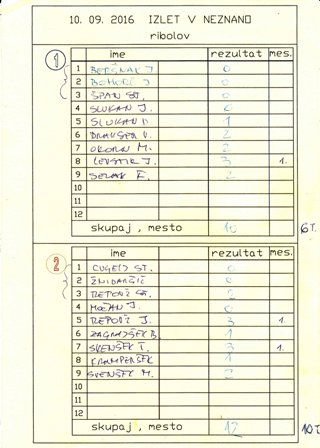 10. 09. 2016 IZLET V NEZNANO
ribolov
1 ime rezultat mes.
1 BERŠNAK J. 0
2 BOHORČ J 0
3 ŠPAN ST. 0
4 SLUKAN J. 0
5 SLUKAN D. 1
6 DRAUŠER V. 2
7 OKORN M. 2
8 LEVSTIK J. 3 1.
9 SELAK E. 2
10
11
12
skupaj , mesto 10 6T.
2 ime rezultat mes.
1 CUGELJ ST. 0
2 ŽNIDARŠIČ 0
3 REPOVŽ ST. 2
4 MOČAN J. 0
5 REPOVŽ J. 3 1.
6 ZAGRAJŠEK B. 1
7 SVENŠEK T. 3 1.
8 KRAMPERŠEK 1
9 SVENŠEK M. 2
10
11
12
skupaj , mesto 12 10T.